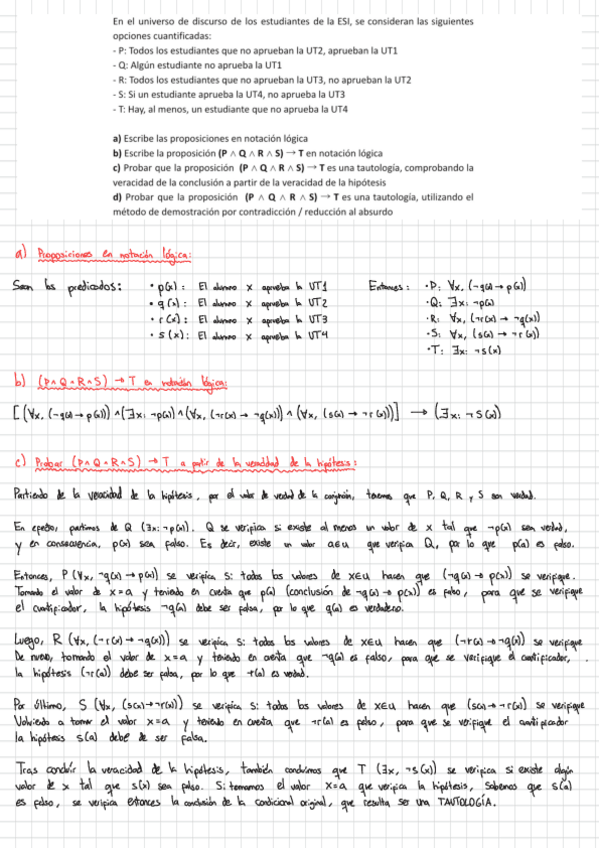 En el universo de discurso de los estudiantes de la ESI, se consideran las siguientes
opciones cuantificadas:
- P: Todos los estudiantes que no aprueban la UT2, aprueban la UT1
- Q: Algún estudiante no aprueba la UT1
- R: Todos los estudiantes que no aprueban la UT3, no aprueban la UT2
- S: Si un estudiante aprueba la UT4, no aprueba la UT3
- T: Hay, al menos, un estudiante que no aprueba la UT4
a) Escribe las proposiciones en notación lógica
b) Escribe la proposición (P ∧ Q ∧ R ∧ S) → T en notación lógica
c) Probar que la proposición (P ∧ Q ∧ R ∧ S) → T es una tautología, comprobando la
veracidad de la conclusión a partir de la veracidad de la hipótesis
d) Probar que la proposición (P ∧ Q ∧ R ∧ S) → T es una tautología, utilizando el
método de demostración por contradicción / reducción al absurdo
a) Proposiciones en notación lógica:
Sean los predicados: • p(x): El alumno x aprueba la UT1 Entonces: • P: ∀x, (¬q(x) → p(x))
• q(x): El alumno x aprueba la UT2 • Q: ∃x: ¬p(x)
• r(x): El alumno x aprueba la UT3 • R: ∀x, (¬r(x) → ¬q(x))
• s(x): El alumno x aprueba la UT4 • S: ∀x, (s(x) → ¬r(x))
• T: ∃x: ¬s(x)
b) (P∧Q∧R∧S) → T en notación lógica:
[(∀x, (¬q(x) → p(x)) ∧ (∃x: ¬p(x)) ∧ (∀x, (¬r(x) → ¬q(x)) ∧ (∀x, (s(x) → ¬r(x)))] → (∃x: ¬s(x))
c) Probar (P∧Q∧R∧S) → T a partir de la veracidad de la hipótesis:
Partiendo de la veracidad de la hipótesis, por el valor de verdad de la conjunción, tenemos que P, Q, R y S son verdad.
En efecto, partimos de Q (∃x: ¬p(x)). Q se verifica si existe al menos un valor de x tal que ¬p(x) sea verdad,
y en consecuencia, p(x) sea falso. Es decir, existe un valor a∈U que verifica Q, por lo que p(a) es falso.
Entonces, P (∀x, ¬q(x) → p(x)) se verifica si todos los valores de x∈U hacen que (¬q(x) → p(x)) se verifique.
Tomando el valor de x=a y teniendo en cuenta que p(a) (conclusión de ¬q(x) → p(x)) es falso, para que se verifique
el cuantificador, la hipótesis ¬q(a) debe ser falsa, por lo que q(a) es verdadero.
Luego, R (∀x, (¬r(x) → ¬q(x))) se verifica si todos los valores de x∈U hacen que (¬r(x) → ¬q(x)) se verifique
De nuevo, tomando el valor de x=a y teniendo en cuenta que ¬q(a) es falso, para que se verifique el cuantificador,
la hipótesis (¬r(a)) debe ser falsa, por lo que r(a) es verdad.
Por último, S (∀x, (s(x)→¬r(x)) se verifica si todos los valores de x∈U hacen que (s(x) → ¬r(x)) se verifique
Volviendo a tomar el valor x=a y teniendo en cuenta que ¬r(a) es falso, para que se verifique el cuantificador
la hipótesis s(a) debe de ser falsa.
Tras concluir la veracidad de la hipótesis, también concluimos que T (∃x, ¬s(x)) se verifica si existe algún
valor de x tal que s(x) sea falso. Si tomamos el valor x=a que verifica la hipótesis, sabemos que s(a)
es falso, se verifica entonces la conclusión de la condicional original, que resulta ser una TAUTOLOGÍA.